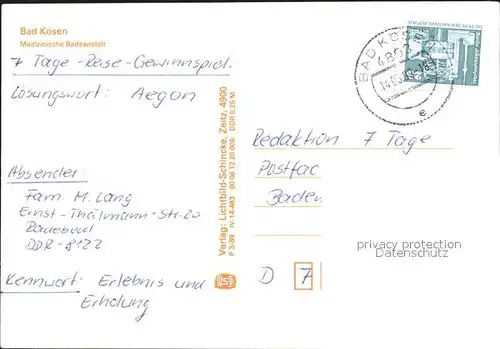 Bad Kösen
Medizinische Badeanstalt
7 Tage-Reise-Gewinnspiel.
Lösungswort: Aegon
Absender:
Fam. M. Lang
Ernst-Thälmann-Str. 20
Radebeul
DDR-8122
Kennwort: Erlebnis und
Erholung
Verlag: Lichtbild-Schincke, Zeitz, 4900
P 3/89 IV-14-483 00 08 12 20 006 DDR 0,25 M
BAD KÖSEN
4802
e
Redaktion 7 Tage
Postfac
Baden
privacy protection
Datenschutz
D 7